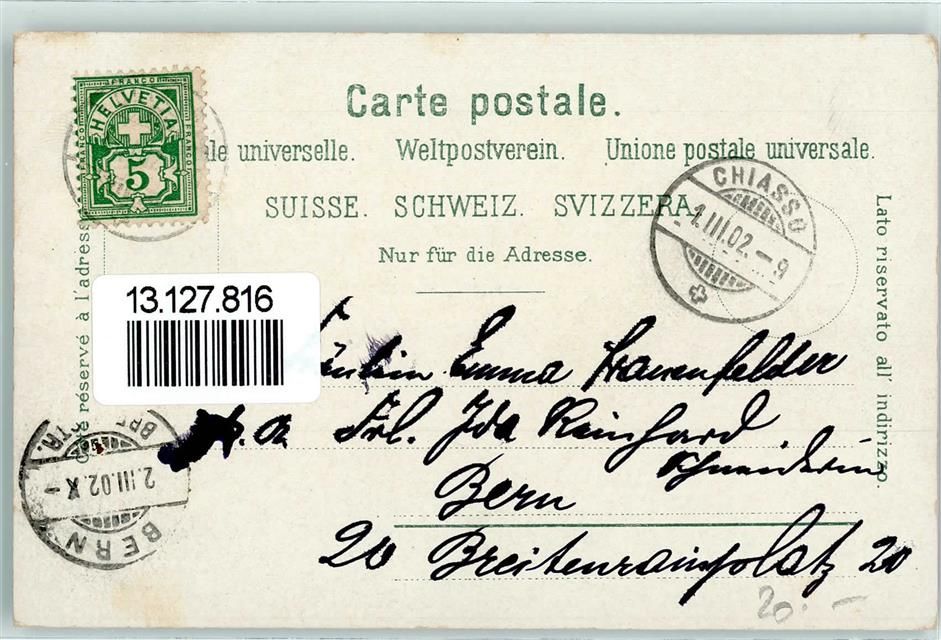 Carte postale.
ale universelle. Weltpostverein. Unione postale universale.
SUISSE. SCHWEIZ. SVIZZERA.
Nur für die Adresse.
FRANCO
HELVETIA
FRANCO
FRANCO
5
CHIASSO
1.III.02.-9
Lato riservato all' indirizzo.
Côté réservé à l'adresse
13.127.816
Fräulein Emma Frauenfelder
p.a Frl. Ida Reinhard.
Schneiderin
Bern
20 Breitenrainplatz 20
BERN
2.III.02.X-
20.-